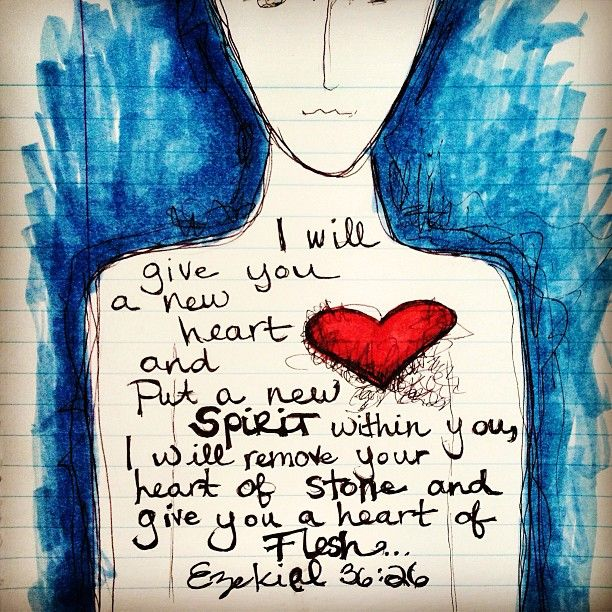 I will
give you
a new
heart
and
Put a new
Spirit within you,
I will remove your
heart of stone and
give you a heart of
Flesh...
Ezekiel 36:26